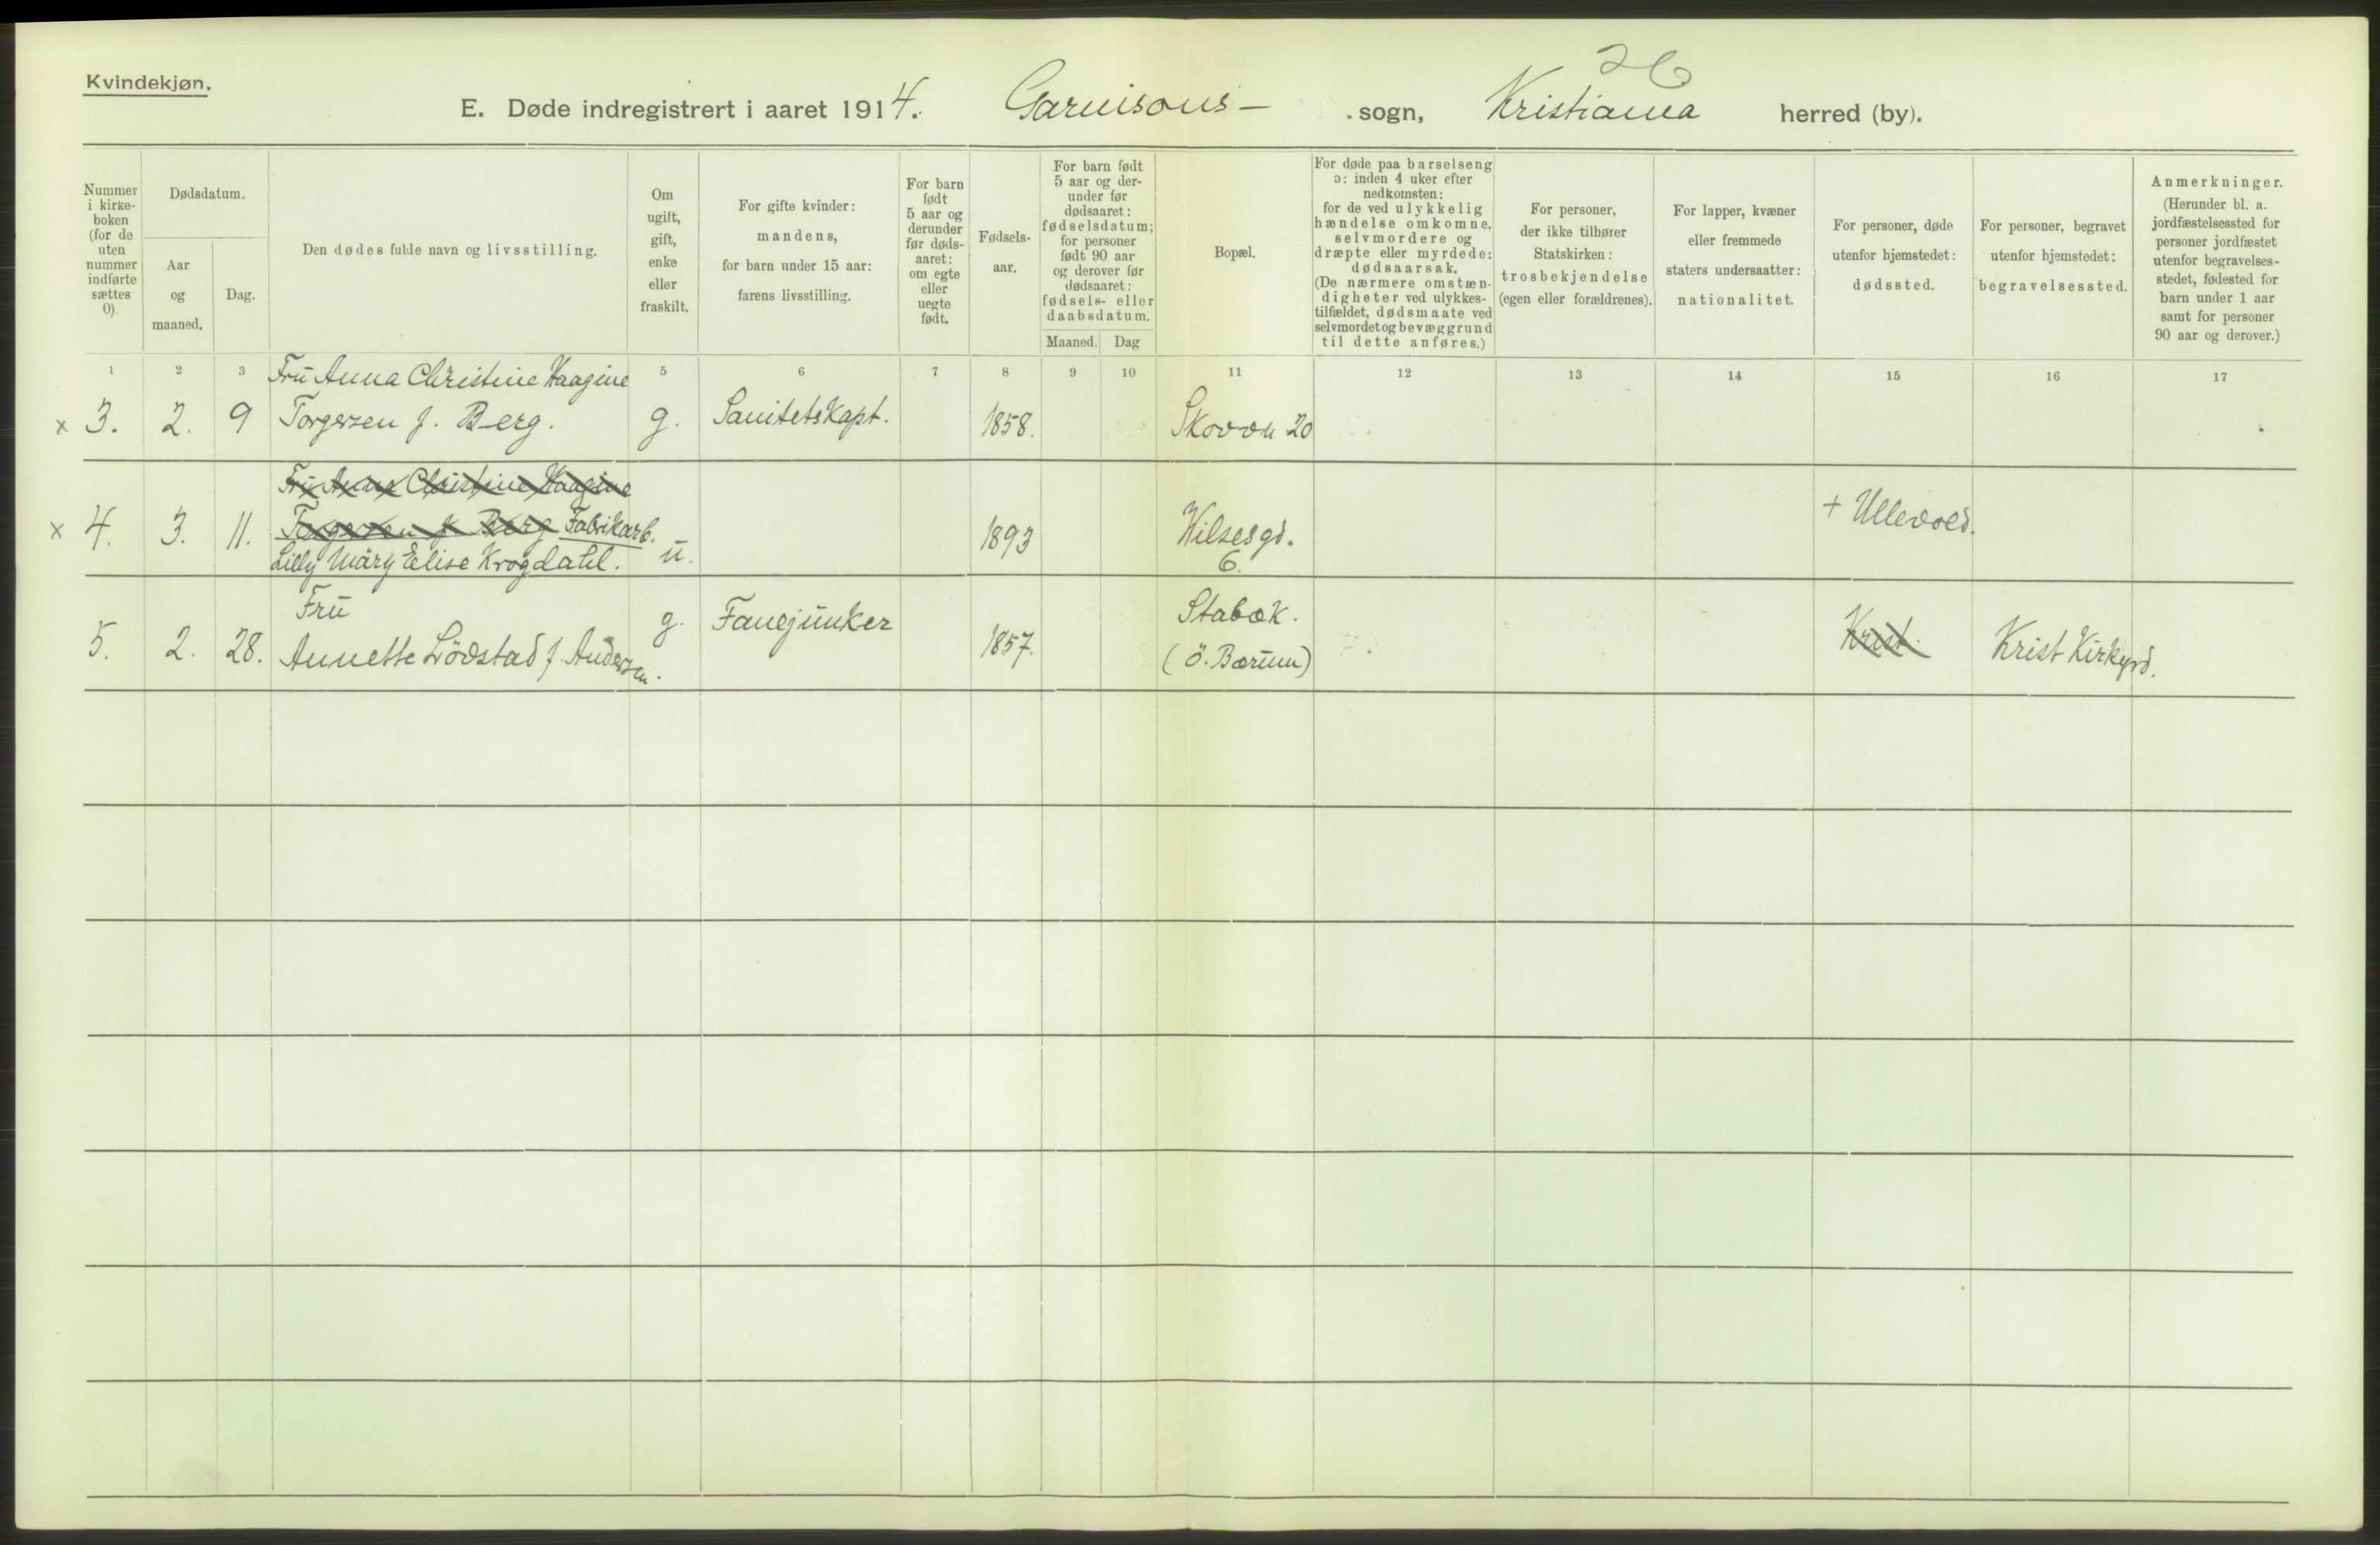 26
Kvindekjøn.
E. Døde indregistrert i aaret 1914. Garnisons- sogn, Kristiania herred (by).
Nummer
i kirke-
boken
(for de
uten
nummer
indførte
sættes
0).
Dødsdatum.
Aar
og
maaned.
Dag.
Den dødes fulde navn og livsstilling.
Om
ugift,
gift,
enke
eller
fraskilt.
For gifte kvinder:
mandens,
for barn under 15 aar:
farens livsstilling.
For barn
født
5 aar og
derunder
før døds-
aaret:
om egte
eller
uegte
født.
Fødsels-
aar.
For barn født
5 aar og der-
under før
dødsaaret:
fødselsdatum;
for personer
født 90 aar
og derover før
dødsaaret:
fødsels- eller
daabsdatum.
Maaned. Dag
Bopæl.
For døde paa barselseng
ɔ: inden 4 uker efter
nedkomsten:
for de ved ulykkelig
hændelse omkomne,
selvmordere og
dræpte eller myrdede:
dødsaarsak.
(De nærmere omstæn-
digheter ved ulykkes-
tilfældet, dødsmaate ved
selvmordet og bevæggrund
til dette anføres.)
For personer,
der ikke tilhører
Statskirken:
trosbekjendelse
(egen eller forældrenes).
For lapper, kvæner
eller fremmede
staters undersaatter:
nationalitet.
For personer, døde
utenfor hjemstedet:
dødssted.
For personer, begravet
utenfor hjemstedet:
begravelsessted.
Anmerkninger.
(Herunder bl. a.
jordfæstelsessted for
personer jordfæstet
utenfor begravelses-
stedet, fødested for
barn under 1 aar
samt for personer
90 aar og derover.)
1 2 3 5 6 7 8 9 10 11 12 13 14 15 16 17
Fru Anna Christine Haagine
x 3. 2. 9 Torgersen f. Berg. g. Sanitetskapt. 1858. Skovvn 20
Fru Anna Christine Haagine
x 4. 3. 11. Torgersen f Berg Fabrikarb. 1893 Wilsesgd. + Ullevold.
Lilly Märy Elise Krogdahl. u. 6.
Fru g. Fanejunker Stabæk.
5. 2. 28. Annette Lödstad f. Andersen. 1857. (ö. Bærum) Krist. Krist Kirkegrd.